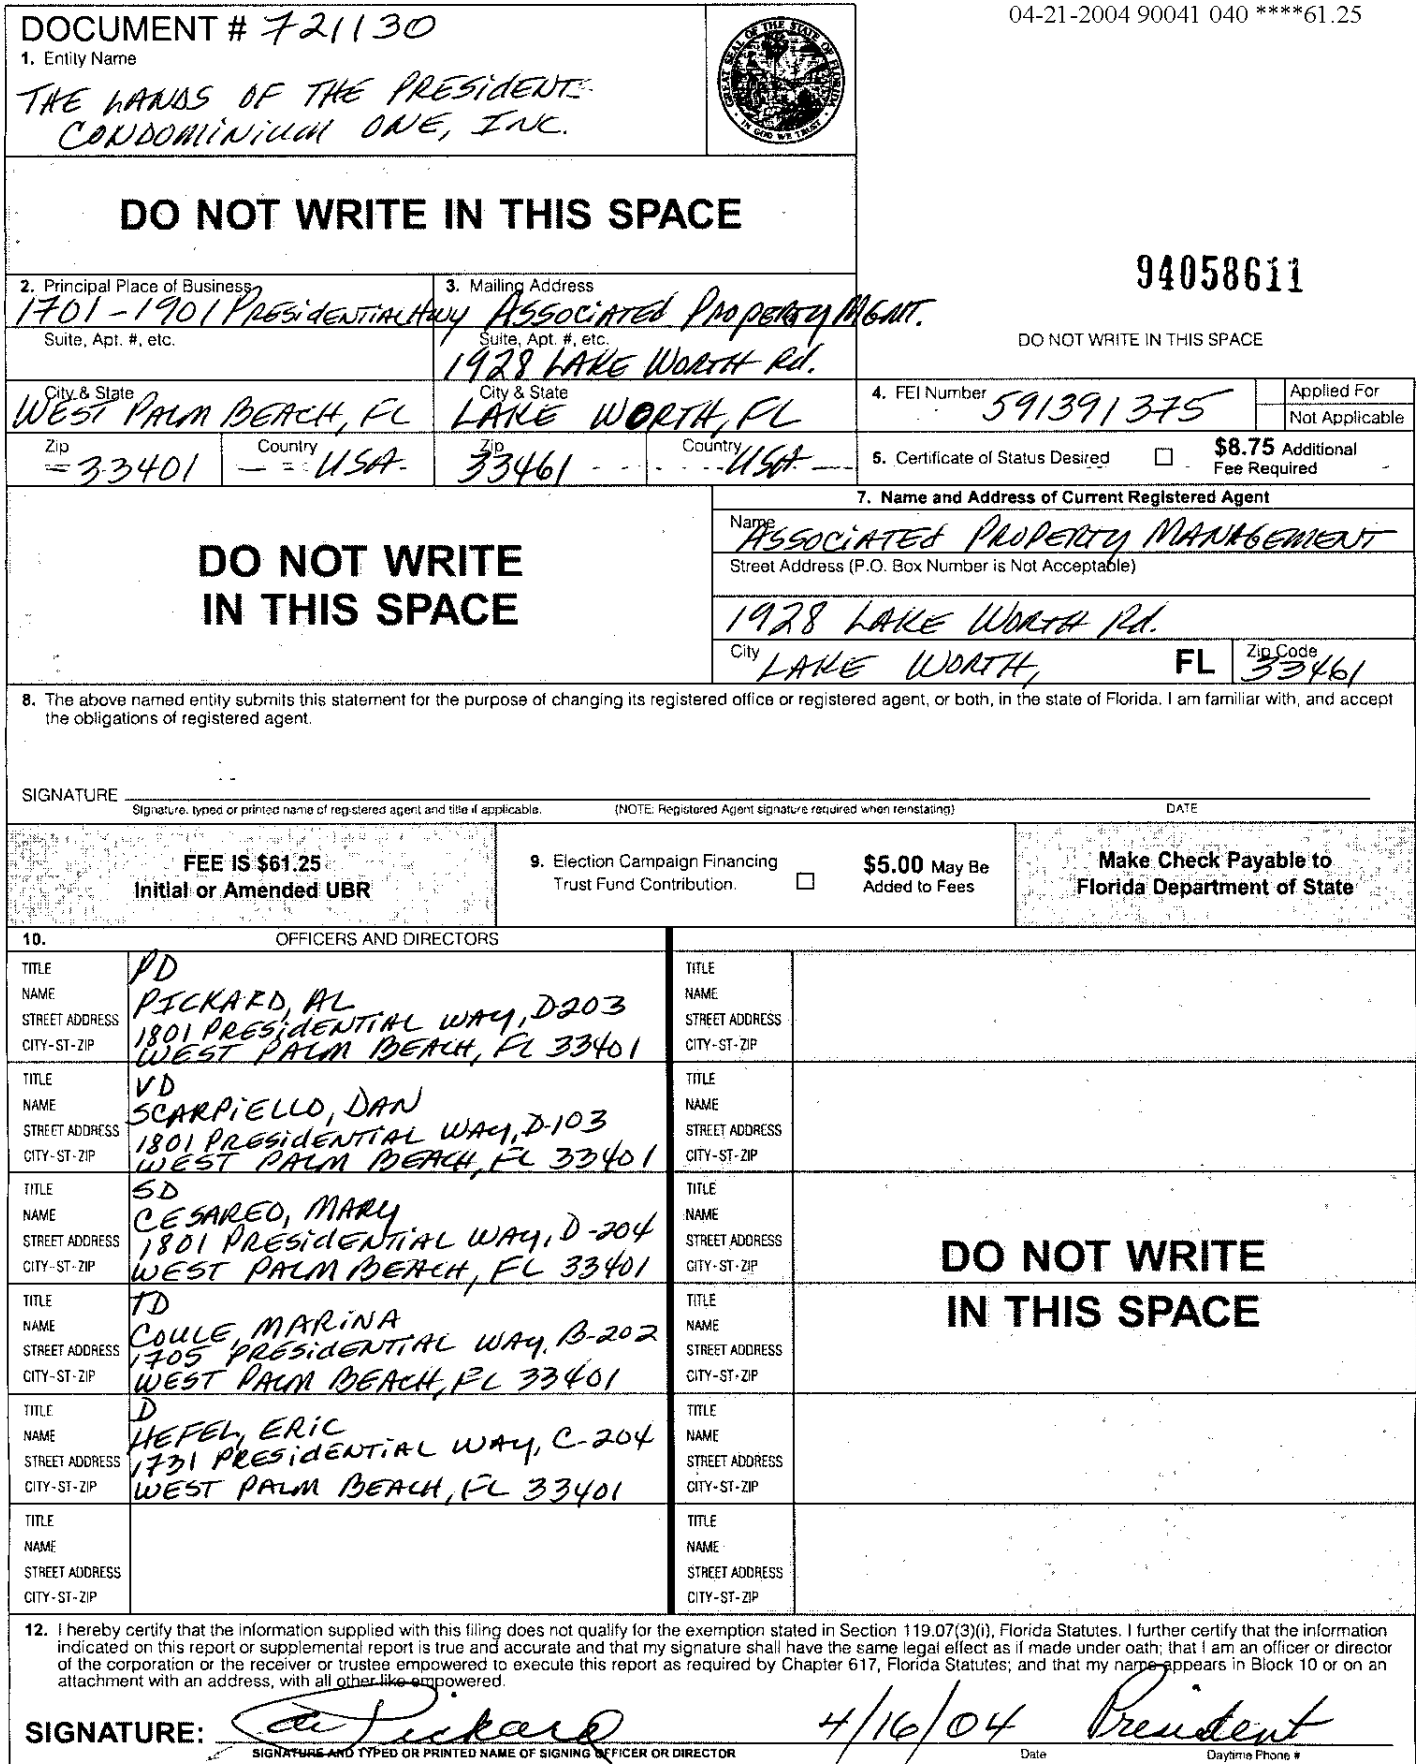 04-21-2004 90041 040 ****61.25
DOCUMENT # 721130
1. Entity Name
THE LANDS OF THE PRESIDENT
CONDOMINIUM ONE, INC.
GREAT SEAL OF THE STATE OF FLORIDA
IN GOD WE TRUST
DO NOT WRITE IN THIS SPACE
94058611
DO NOT WRITE IN THIS SPACE
2. Principal Place of Business
1701-1901 PRESIDENTIAL HWY
Suite, Apt. #, etc.
City & State
WEST PALM BEACH, FL
Zip
33401
Country
USA
3. Mailing Address
ASSOCIATED PROPERTY MGMT.
Suite, Apt. #, etc.
1928 LAKE WORTH Rd.
City & State
LAKE WORTH, FL
Zip
33461
Country
USA
4. FEI Number 591391375
Applied For
Not Applicable
5. Certificate of Status Desired
$8.75 Additional
Fee Required
DO NOT WRITE
IN THIS SPACE
7. Name and Address of Current Registered Agent
Name
ASSOCIATED PROPERTY MANAGEMENT
Street Address (P.O. Box Number is Not Acceptable)
1928 LAKE WORTH Rd.
City LAKE WORTH, FL Zip Code 33461
8. The above named entity submits this statement for the purpose of changing its registered office or registered agent, or both, in the state of Florida. I am familiar with, and accept
the obligations of registered agent.
SIGNATURE
Signature, typed or printed name of registered agent and title if applicable. (NOTE: Registered Agent signature required when reinstating) DATE
FEE IS $61.25
Initial or Amended UBR
9. Election Campaign Financing
Trust Fund Contribution.
$5.00 May Be
Added to Fees
Make Check Payable to
Florida Department of State
10. OFFICERS AND DIRECTORS
TITLE PD
NAME PICKARD, AL
STREET ADDRESS 1801 PRESIDENTIAL WAY, D-203
CITY-ST-ZIP WEST PALM BEACH, FL 33401
TITLE VD
NAME SCARPIELLO, DAN
STREET ADDRESS 1801 PRESIDENTIAL WAY, D-103
CITY-ST-ZIP WEST PALM BEACH, FL 33401
TITLE SD
NAME CESAREO, MARY
STREET ADDRESS 1801 PRESIDENTIAL WAY, D-204
CITY-ST-ZIP WEST PALM BEACH, FL 33401
TITLE TD
NAME COULE, MARINA
STREET ADDRESS 1705 PRESIDENTIAL WAY, B-202
CITY-ST-ZIP WEST PALM BEACH, FL 33401
TITLE D
NAME HEFEL, ERIC
STREET ADDRESS 1731 PRESIDENTIAL WAY, C-204
CITY-ST-ZIP WEST PALM BEACH, FL 33401
TITLE
NAME
STREET ADDRESS
CITY-ST-ZIP
TITLE
NAME
STREET ADDRESS
CITY-ST-ZIP
TITLE
NAME
STREET ADDRESS
CITY-ST-ZIP
TITLE
NAME
STREET ADDRESS
CITY-ST-ZIP
TITLE
NAME
STREET ADDRESS
CITY-ST-ZIP
TITLE
NAME
STREET ADDRESS
CITY-ST-ZIP
TITLE
NAME
STREET ADDRESS
CITY-ST-ZIP
DO NOT WRITE
IN THIS SPACE
12. I hereby certify that the information supplied with this filing does not qualify for the exemption stated in Section 119.07(3)(i), Florida Statutes. I further certify that the information
indicated on this report or supplemental report is true and accurate and that my signature shall have the same legal effect as if made under oath; that I am an officer or director
of the corporation or the receiver or trustee empowered to execute this report as required by Chapter 617, Florida Statutes; and that my name appears in Block 10 or on an
attachment with an address, with all other like empowered.
SIGNATURE: Al Pickard 4/16/04 President
SIGNATURE AND TYPED OR PRINTED NAME OF SIGNING OFFICER OR DIRECTOR Date Daytime Phone #